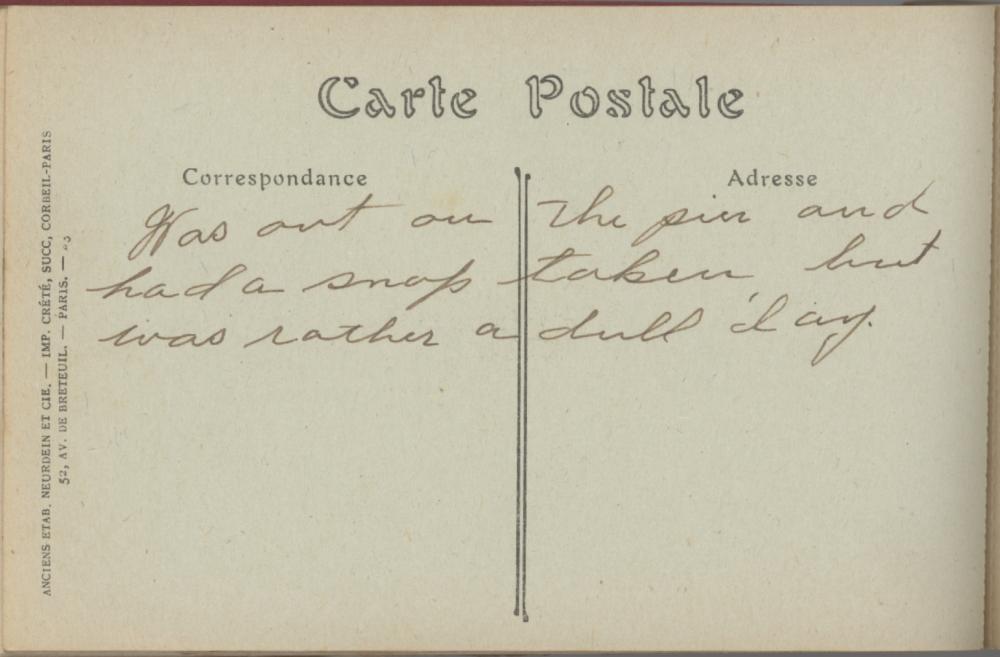 Carte Postale
Correspondance
Adresse
Was out on the pier and
had a snap taken but
was rather a dull day.
ANCIENS ETAB. NEURDEIN ET CIE. — IMP. CRÉTÉ, SUCC, CORBEIL-PARIS
52, AV. DE BRETEUIL. — PARIS. —